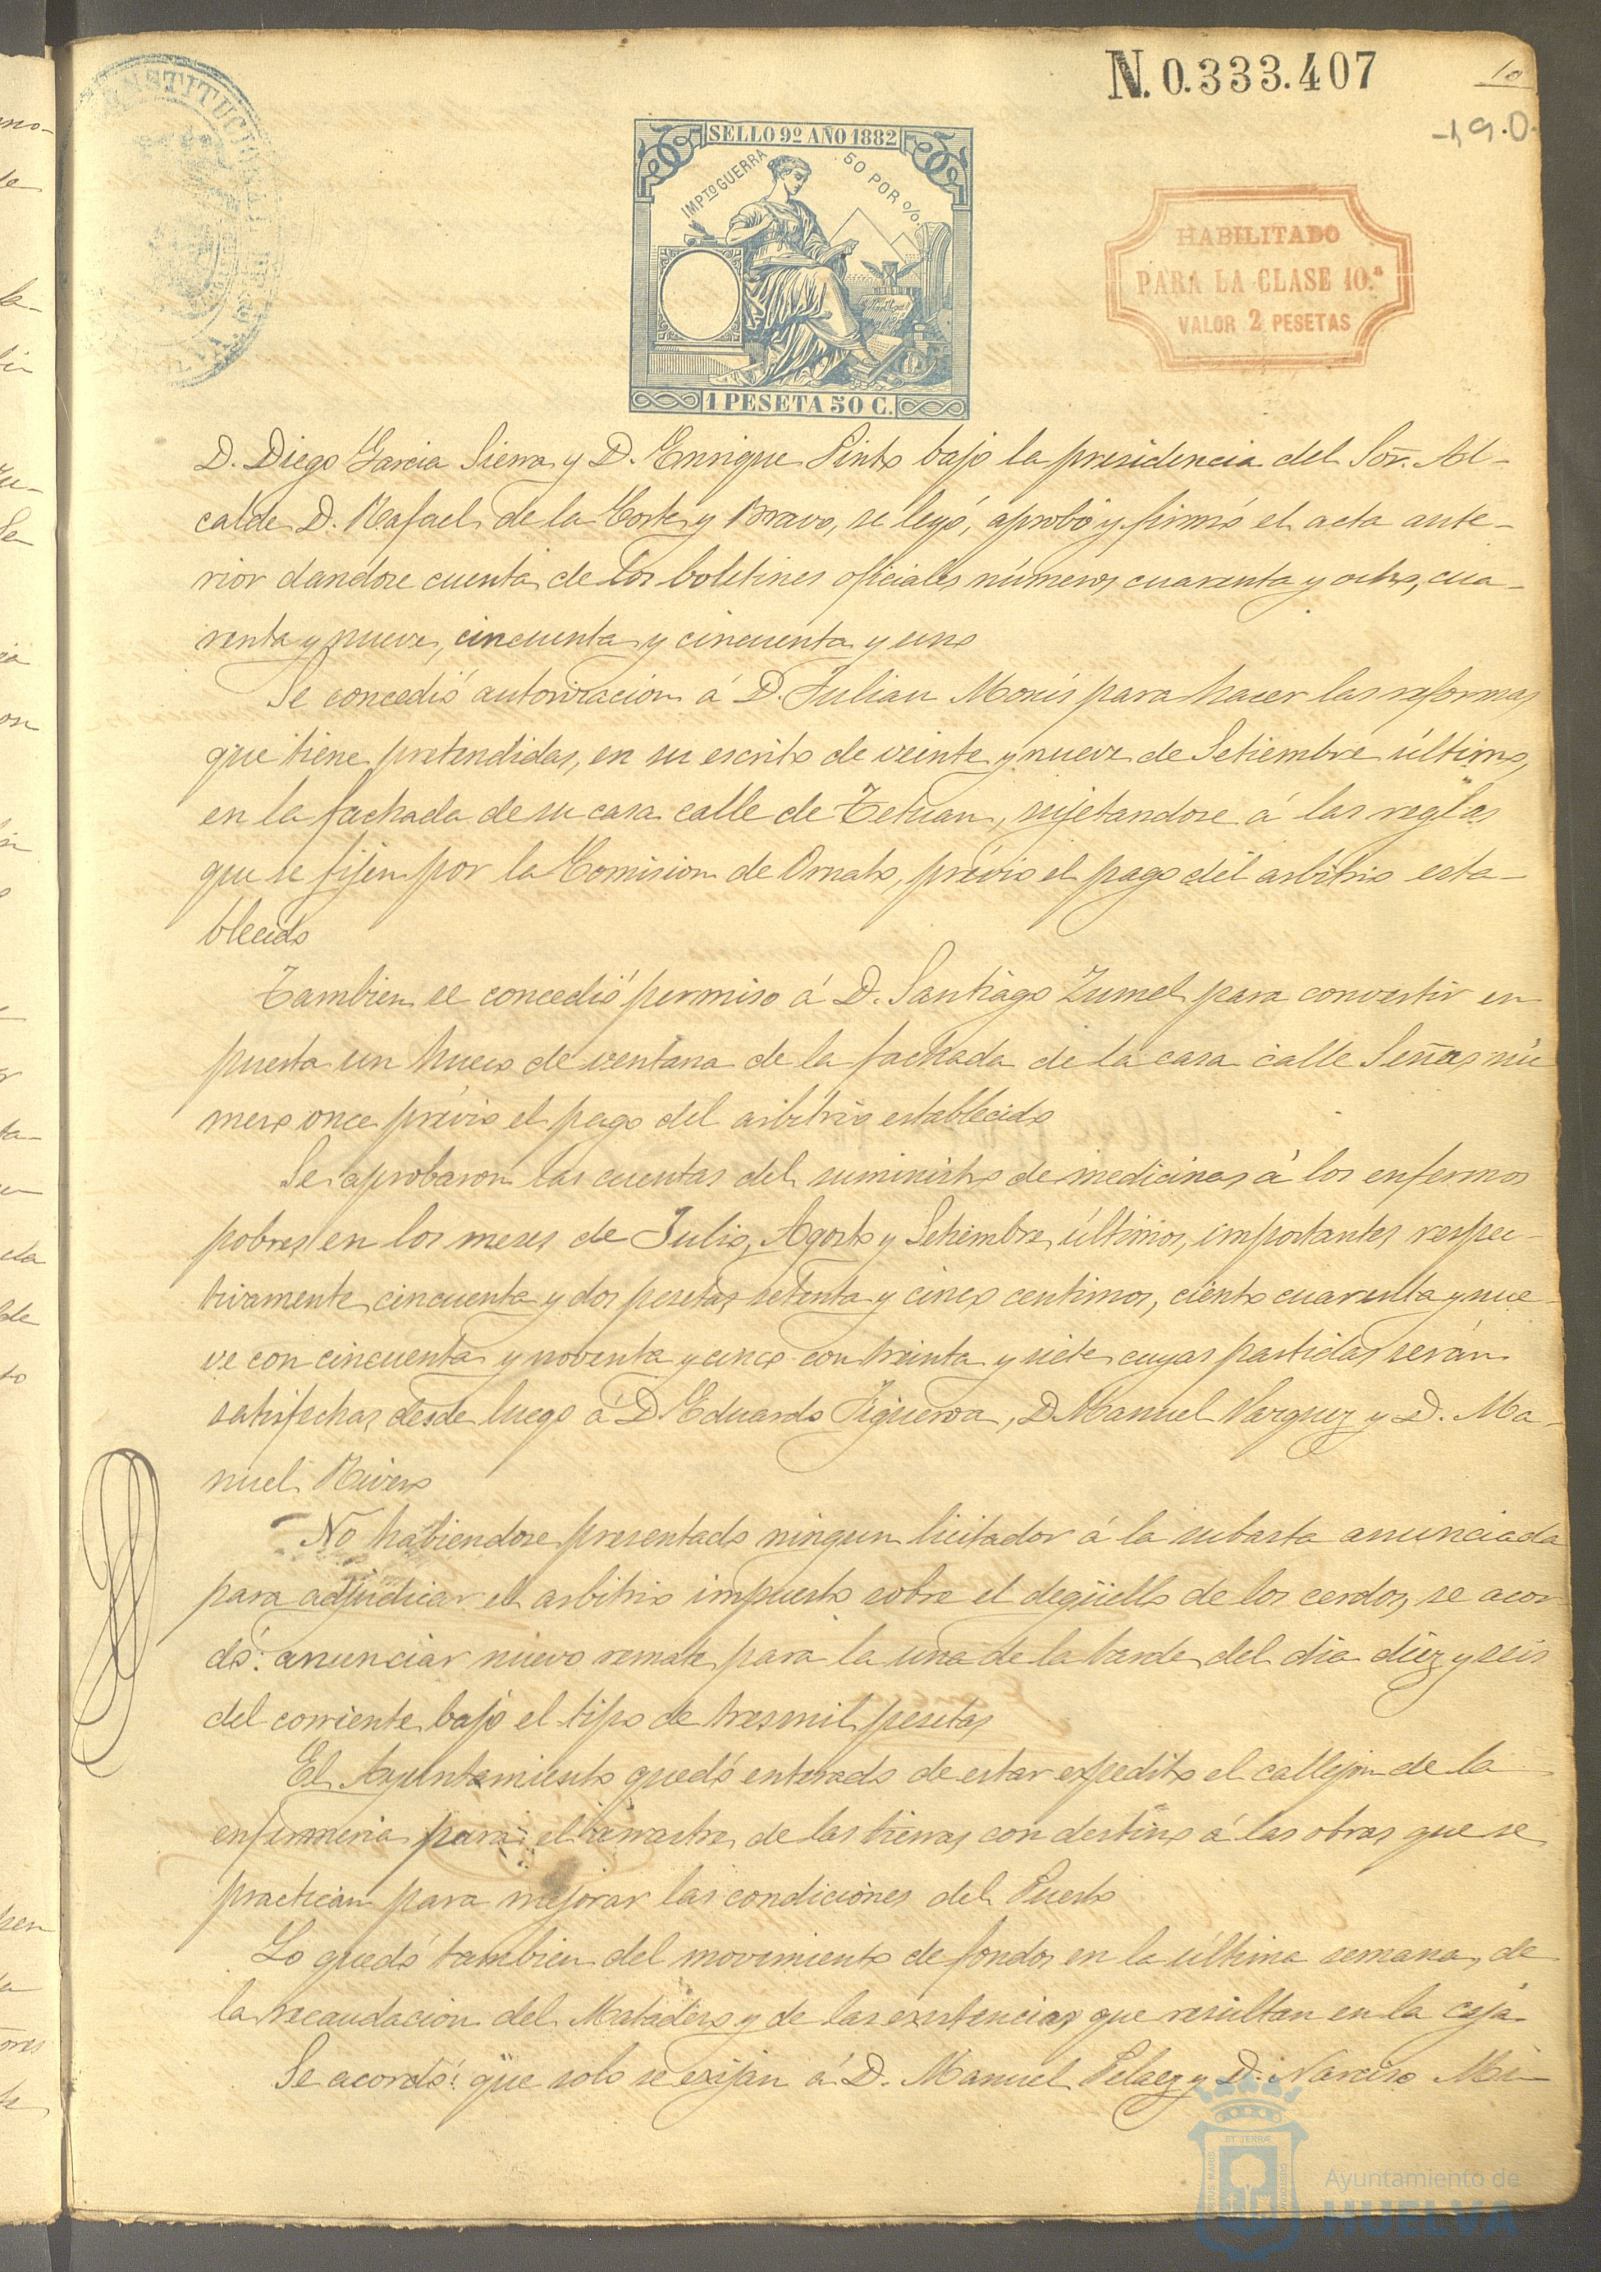 N. 0.333.407
10
SELLO 9º AÑO 1882
IMPTO GUERRA 50 POR %
1 PESETA 50 C.
HABILITADO
PARA LA CLASE 10.ª
VALOR 2 PESETAS
D. Diego Garcia Sierra y D. Enrique Pinto bajo la presidencia del Sor. Al-
calde D. Rafael de la Corte y Bravo, se leyó, aprobó y firmó el acta ante-
rior dandose cuenta de los boletines oficiales números cuarenta y ocho, cua-
renta y nueve, cincuenta y cincuenta y uno
Se concedió autorizacion á D. Julian Monís para hacer las reformas
que tiene pretendidas, en su escrito de veinte y nueve de Setiembre último,
en la fachada de su casa calle de Tetuan, sujetandose á las reglas
que se fijen por la Comision de Ornato, prévio el pago del arbitrio esta-
blecido
Tambien se concedió permiso á D. Santiago Zumel para convertir en
puerta un hueco de ventana de la fachada de la casa calle Señas nú
mero once prévio el pago del arbitrio establecido
Se aprobaron las cuentas del suministro de medicinas á los enfermos
pobres en los meses de Julio, Agosto y Setiembre últimos, importantes respec-
tivamente cincuenta y dos pesetas setenta y cinco centimos, ciento cuarenta y nue-
ve con cincuenta y noventa y cinco con treinta y siete cuyas partidas serán
satisfechas desde luego á D. Eduardo Figueroa, D. Manuel Vazquez y D. Ma-
nuel Rivero
No habiendose presentado ningun licitador á la subasta anunciada
para adjudicar el arbitrio impuesto sobre el degüello de los cerdos, se acor
dó: anunciar nuevo remate para la una de la tarde del dia diez y seis
del corriente bajo el tipo de tres mil pesetas
El Ayuntamiento quedó enterado de estar expedito el callejon de la
enfermeria para el arrastre de las tierras con destino á las obras que se
practican para mejorar las condiciones del Puerto
Lo quedó tambien del movimiento de fondos en la última semana, de
la recaudacion del Matadero y de las existencias que resultan en la caja
Se acordó: que solo se exijan á D. Manuel Pelaez y D. Narciso Mi-
Ayuntamiento de
HUELVA